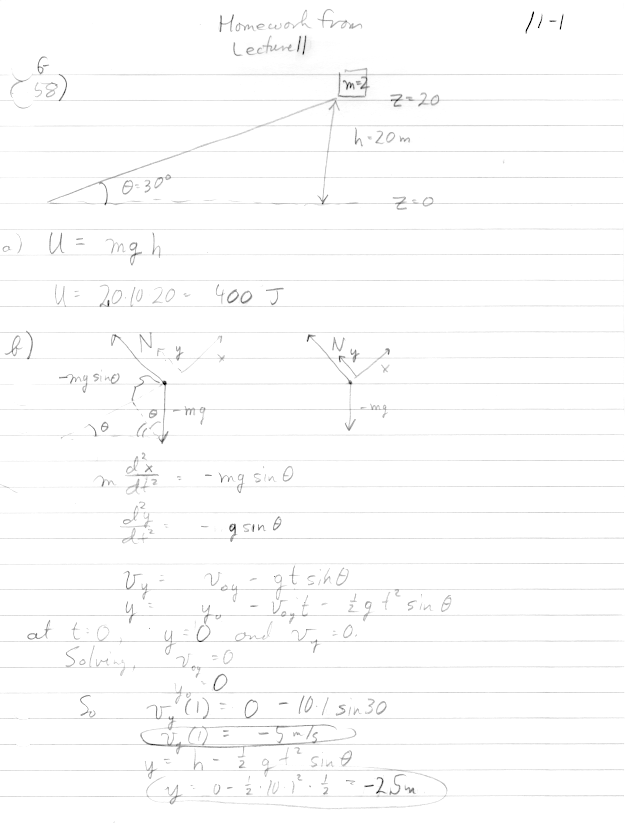 Homework from 11-1
Lecture 11
6
58)
m=2
z=20
h=20m
θ=30°
z=0
a) U = mgh
U = 20·10 20 = 400 J
b)
N y x N y x
-mg sinθ
θ -mg -mg
θ
m d²x/dt² = -mg sin θ
d²y/dt² = - g sin θ
v_y = v_oy - gt sin θ
y = y_o - v_oy t - ½ g t² sin θ
at t=0, y=0 and v_y=0.
Solving, v_oy = 0
y_o = 0
So v_y(1) = 0 - 10·1 sin30
v_y(1) = -5 m/s
y = h - ½ g t² sin θ
y = 0 - ½·10·1²·½ = -2.5m